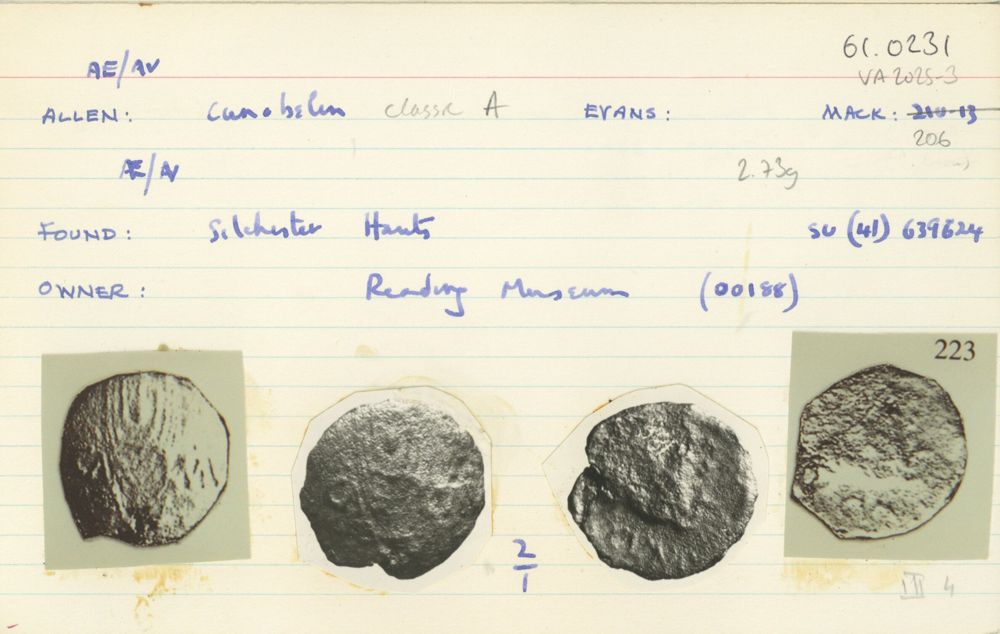 61.0231
AE/AV
VA 2025-3
ALLEN: Cunobelin classic A EVANS: MACK: 210-13
206
Æ/AV
2.73g
FOUND: Silchester Hants SU (41) 639624
OWNER: Reading Museum (00188)
223
2
1
III 4